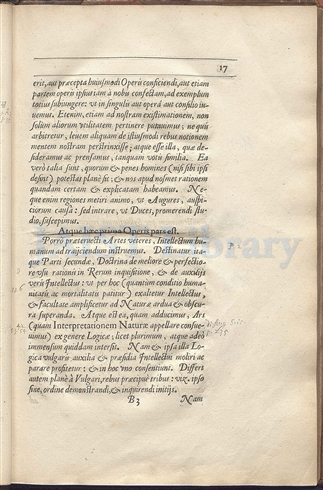 17
erit, aut præcepta huiusmodi Operis conficiendi, aut etiam
partem operis ipsius iam à nobis confectam, ad exemplum
totius subiungere: vt in singulis aut operâ aut consilio iu-
uemus. Etenim, etiam ad nostram existimationem, non
solùm aliorum vtilitatem pertinere putauimus; ne quis
arbitretur, leuem aliquam de istiusmodi rebus notionem
mentem nostram perstrinxisse; atque esse illa, quæ de-
sideramus ac prensamus, tanquam votis similia. Ea
verò talia sunt, quorum & penes homines (nisi sibi ipsi
desint) potestas planè sit; & nos apud nosmet rationem
quandam certam & explicatam habeamus. Ne-
que enim regiones metiri animo, vt Augures, auspi-
ciorum causâ: sed intrare, vt Duces, promerendi stu-
dio, suscepimus.
Atque hæc prima Operis pars est.
Porrò præteruecti Artes veteres, Intellectum hu-
manum ad traijciendum instruemus. Destinatur ita-
que Parti secundæ, Doctrina de meliore & perfectio-
re vsu rationis in Rerum inquisitione, & de auxilijs
veris Intellectus: vt per hoc (quantùm conditio huma-
nitatis ac mortalitatis patitur) exaltetur Intellectus,
& facultate amplificetur ad Naturæ ardua & obscu-
ra superanda. Atque est ea, quam adducimus, Ars
(quam Interpretationem Naturæ appellare consue-
uimus) ex genere Logicæ; licet plurimum, atque adeò
immensum quiddam intersit. Nam & ipsa illa Lo-
gica vulgaris auxilia & præsidia Intellectui moliri ac
parare profitetur: & in hoc vno consentiunt. Differt
autem planè à Vulgari, rebus præcipuè tribus: viz. ipso
fine, ordine demonstrandi, & inquirendi initijs.
B 3
Nam